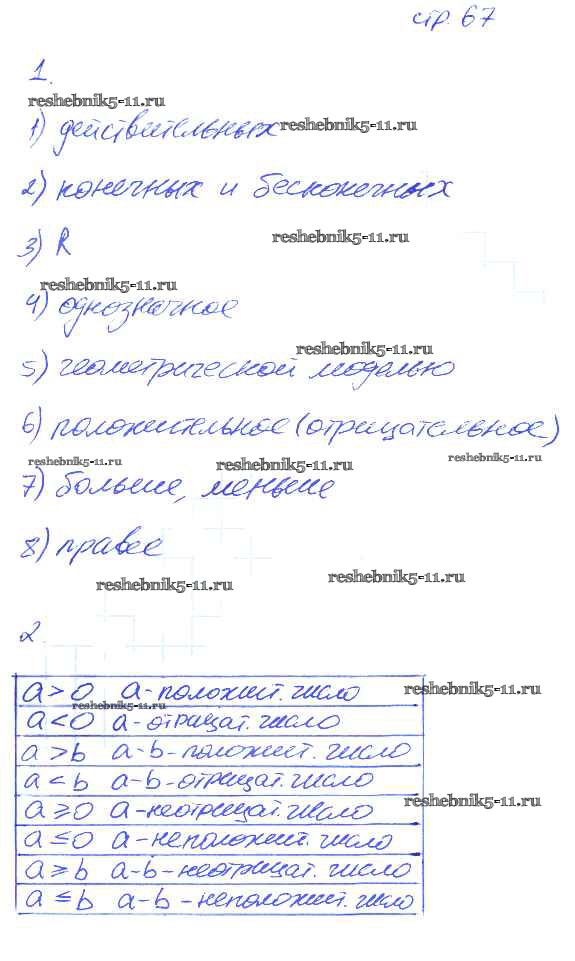 стр. 67
1.
reshebnik5-11.ru
1) действительных reshebnik5-11.ru
2) конечных и бесконечных
reshebnik5-11.ru
3) R
reshebnik5-11.ru
4) однозначное
reshebnik5-11.ru
5) геометрической моделью
6) положительное (отрицательное)
reshebnik5-11.ru reshebnik5-11.ru reshebnik5-11.ru
7) больше, меньше
8) правее
reshebnik5-11.ru reshebnik5-11.ru
2
a > 0 a - положит. число reshebnik5-11.ru
reshebnik5-11.ru
a < 0 a - отрицат. число
a > b a - b - положит. число
a < b a - b - отрицат. число
a ⩾ 0 a - неотрицат. число reshebnik5-11.ru
a ≤ 0 a - неположит. число
a ⩾ b a - b - неотрицат. число
a ≤ b a - b - неположит. число